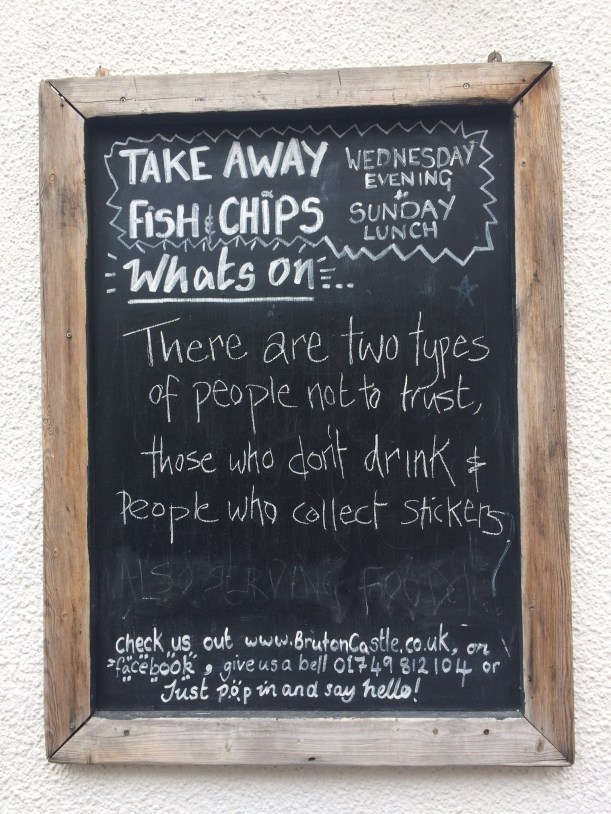 TAKE AWAY
FISH & CHIPS
WEDNESDAY
EVENING
&
SUNDAY
LUNCH
Whats on...
There are two types
of people not to trust,
those who don't drink &
People who collect stickers
ALSO SERVING FOOD
check us out www.BrutonCastle.co.uk, on
"facebook", give us a bell 01749 812104 or
Just pop in and say hello!